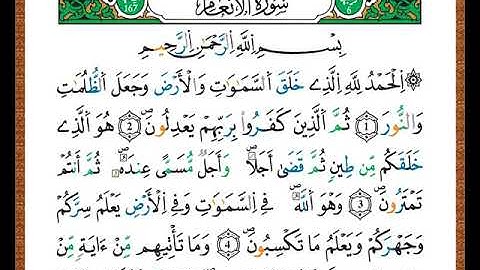 167 سُورَةُ الْأَنْعَامِ 6
بِسْمِ اِللَّهِ اِلرَّحْمَٰنِ اِلرَّحِيمِ
۞ اِلْحَمْدُ لِلهِ اِلذِے خَلَقَ اَلسَّمَٰوَٰتِ وَالْأَرْضَ وَجَعَلَ اَلظُّلُمَٰتِ
وَالنُّورَ (1) ثُمَّ اَلذِينَ كَفَرُواْ بِرَبِّهِمْ يَعْدِلُونَ (2) هُوَ اَلذِے
خَلَقَكُم مِّن طِينٍ ثُمَّ قَضَىٰ أَجَلًا وَأَجَلٌ مُّسَمًّى عِندَهُۥ ثُمَّ أَنتُمْ
تَمْتَرُونَ (3) وَهُوَ اَللَّهُ فِے اِلسَّمَٰوَٰتِ وَفِے اِلْأَرْضِ يَعْلَمُ سِرَّكُمْ
وَجَهْرَكُمْ وَيَعْلَمُ مَا تَكْسِبُونَ (4) وَمَا تَأْتِيهِم مِّنْ ءَايَةٍ مِّنَ